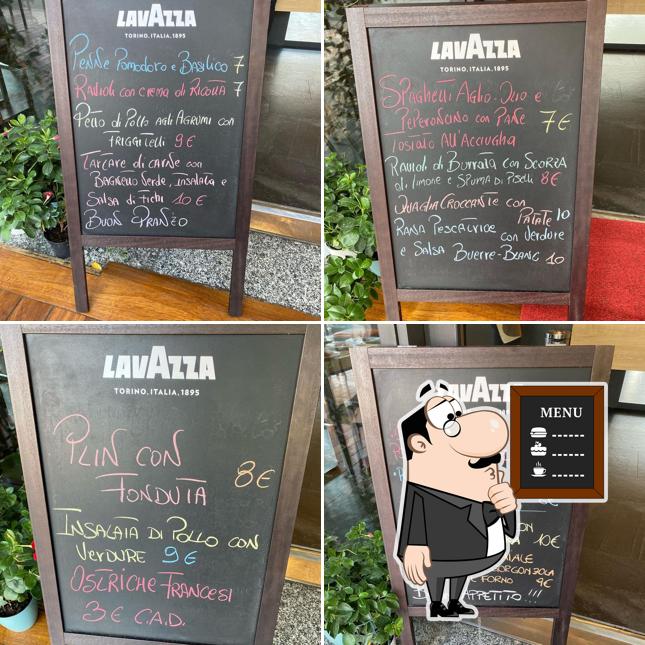 LAVAZZA
TORINO, ITALIA, 1895
Penne Pomodoro e Basilico 7
Ravioli con crema di Ricotta 7
Petto di Pollo agli Agrumi con
friggitelli 9 €
Tartare di carne con
Bagnetto Verde, insalata e
Salsa di fichi 10 €
Buon Pranzo
LAVAZZA
TORINO, ITALIA, 1895
Spaghetti Aglio, Olio e
Peperoncino con Pane 7 €
Tostato All'Acciugha
Ravioli di Burrata con Scorza
di limone e Spuma di Piselli 8 €
Quaglia Croccante con
Patate 10
Rana Pescatrice con Verdure
e Salsa Buerre-Blanc 10
LAVAZZA
TORINO, ITALIA, 1895
Plin con
Fonduta 8 €
Insalata di Pollo con
Verdure 9 €
Ostriche Francesi
3 € C.A.D.
LAVAZZA
MENU
10 €
GORGONZOLA
FORNO 9 €
APPETITO !!!